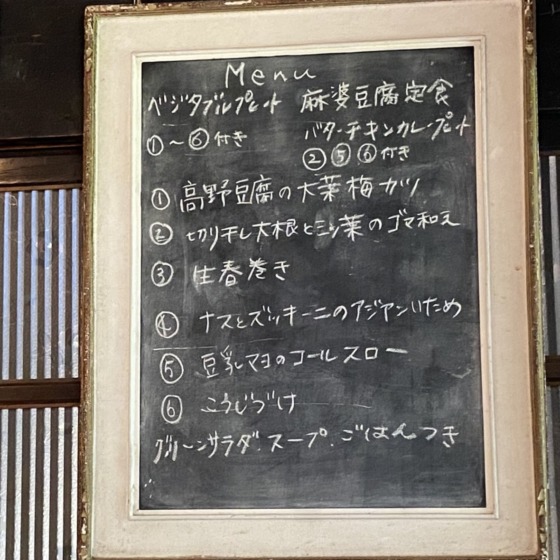 Menu
ベジタブルプレート 麻婆豆腐定食
①〜⑥付き バターチキンカレープレート
②⑤⑥付き
① 高野豆腐の大葉梅カツ
② 切り干し大根と三ッ葉のゴマ和え
③ 生春巻き
④ ナスとズッキーニのアジアンいため
⑤ 豆乳マヨのコールスロー
⑥ こうじづけ
グリーンサラダ.スープ.ごはんつき